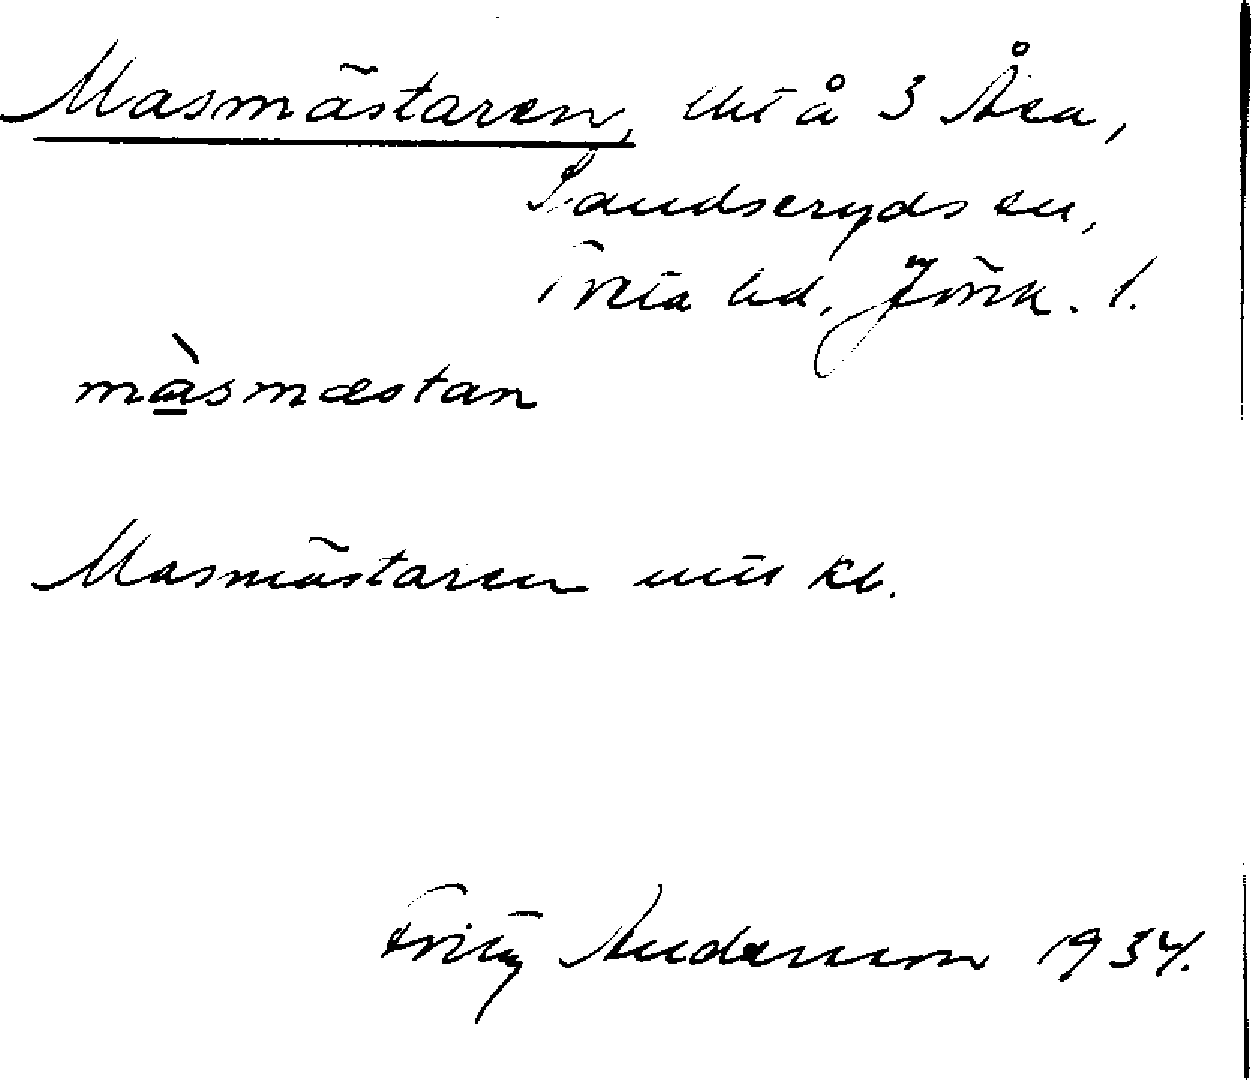 Masmästaren, lht å 3 Åsa,
Sandseryds sn,
Tveta hd, Jönk. l.
màsmæstan
Masmästaren kb.
Fritz Andersson 1934.